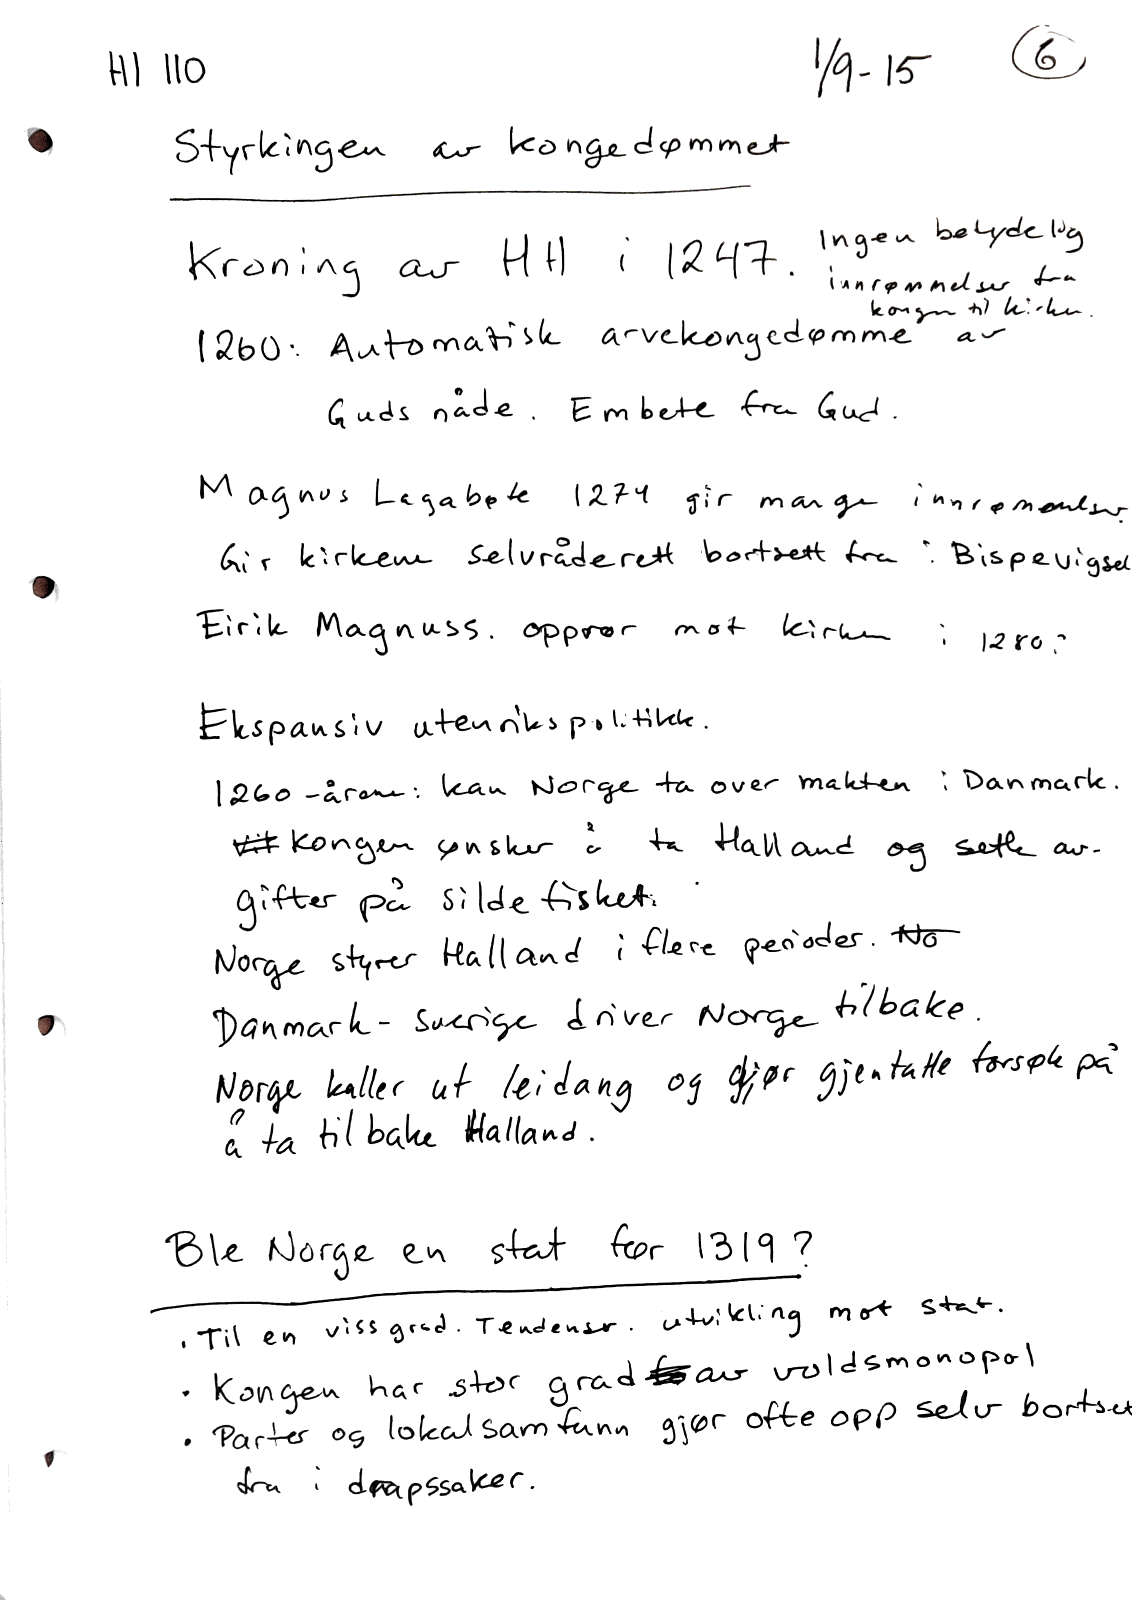 HI 110
1/9-15
6
Styrkingen av kongedømmet
Kroning av HH i 1247.
Ingen betydelig
innrømmelser fra
kongen til kirken.
1260: Automatisk arvekongedømme av
Guds nåde. Embete fra Gud.
Magnus Lagabøte 1274 gir mange innrømmelser.
Gir kirken selvråderett bortsett fra i Bispevigsel
Eirik Magnuss. opprør mot kirken i 1280?
Ekspansiv utenrikspolitikk.
1260-årene: kan Norge ta over makten i Danmark.
Kongen ønsker å ta Halland og sette av-
gifter på sildefisket.
Norge styrer Halland i flere perioder. No
Danmark-Sverige driver Norge tilbake.
Norge kaller ut leidang og gjør gjentatte forsøk på
å ta tilbake Halland.
Ble Norge en stat før 1319?
• Til en viss grad. Tendenser. utvikling mot stat.
• Kongen har stor grad av voldsmonopol
• Parter og lokalsamfunn gjør ofte opp selv bortset
fra i drapssaker.